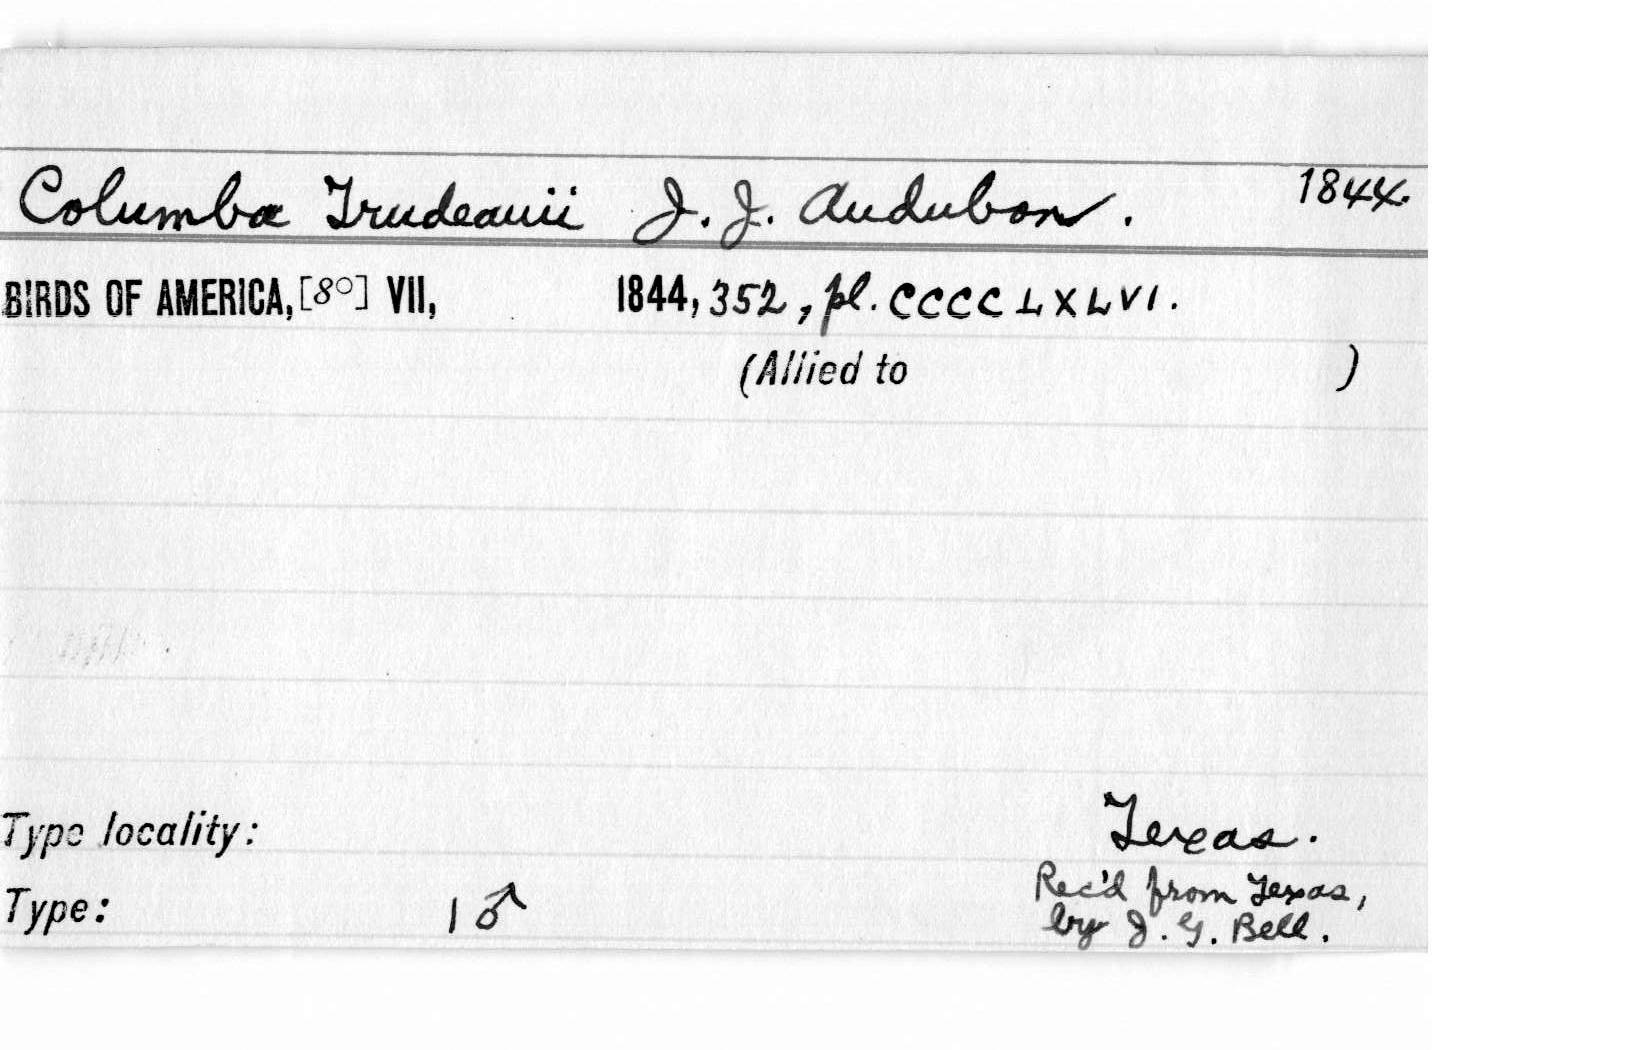 Columba Trudeauii J. J. Audubon. 1844.
BIRDS OF AMERICA, [8°] VII, 1844, 352, pl. CCCCLXLVI.
(Allied to )
Type locality: Texas.
Type: 1 ♂ Rec'd from Texas,
by J. G. Bell.